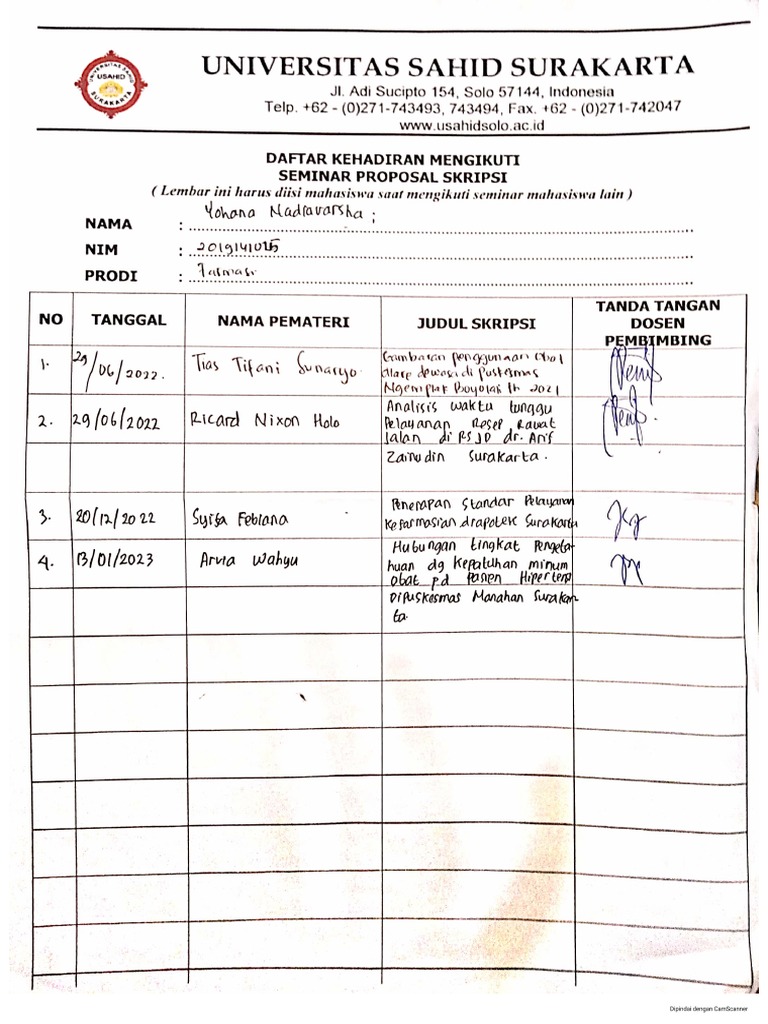 UNIVERSITAS SAHID SURAKARTA
Jl. Adi Sucipto 154, Solo 57144, Indonesia
Telp. +62 - (0)271-743493, 743494, Fax. +62 - (0)271-742047
www.usahidsolo.ac.id
UNIVERSITAS SAHID
USAHID
SURAKARTA
DAFTAR KEHADIRAN MENGIKUTI
SEMINAR PROPOSAL SKRIPSI
( Lembar ini harus diisi mahasiswa saat mengikuti seminar mahasiswa lain )
NAMA : Yohana Madravarsha ;
NIM :
PRODI : Farmasi
NO TANGGAL NAMA PEMATERI JUDUL SKRIPSI TANDA TANGAN DOSEN PEMBIMBING
1. 29/06/2022. Tias Tifani Sunaryo. Gambaran penggunaan obat
diare dewasa di puskesmas
Ngemplak Boyolali th 2021
2. 29/06/2022 Ricard Nixon Holo Analisis waktu tunggu
Pelayanan Resep Rawat
Jalan di RSJD dr. Arif
Zainudin Surakarta.
3. 20/12/2022 Syifa Febiana Penerapan Standar Pelayanan
Kefarmasian diapotek Surakarta
4. 13/01/2023 Arvia Wahyu Hubungan tingkat Pengeta-
huan dg Kepatuhan minum
obat pd Pasien Hipertensi
Dipuskesmas Manahan Surakar
ta.
Dipindai dengan CamScanner